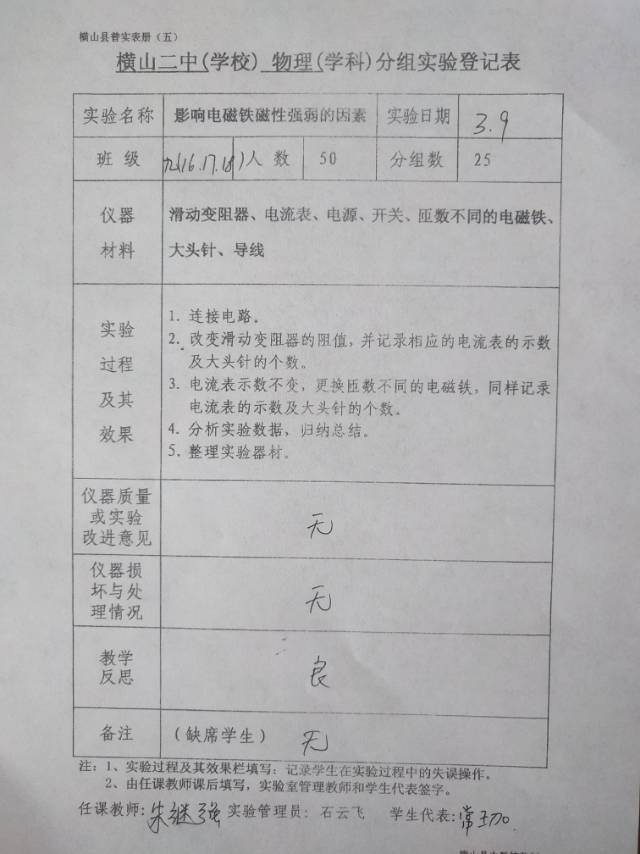 横山县普实表册（五）
横山二中(学校) 物理(学科)分组实验登记表
实验名称 影响电磁铁磁性强弱的因素 实验日期 3.9
班 级 九(16.17.18) 人 数 50 分组数 25
仪器 滑动变阻器、电流表、电源、开关、匝数不同的电磁铁、
材料 大头针、导线
实验
过程
及其
效果
1. 连接电路。
2. 改变滑动变阻器的阻值，并记录相应的电流表的示数
及大头针的个数。
3. 电流表示数不变，更换匝数不同的电磁铁，同样记录
电流表的示数及大头针的个数。
4. 分析实验数据，归纳总结。
5. 整理实验器材。
仪器质量
或实验
改进意见
无
仪器损
坏与处
理情况
无
教学
反思
良
备注 （缺席学生） 无
注：1、实验过程及其效果栏填写：记录学生在实验过程中的失误操作。
2、由任课教师课后填写，实验室管理教师和学生代表签字。
任课教师: 朱继强 实验管理员: 石云飞 学生代表: